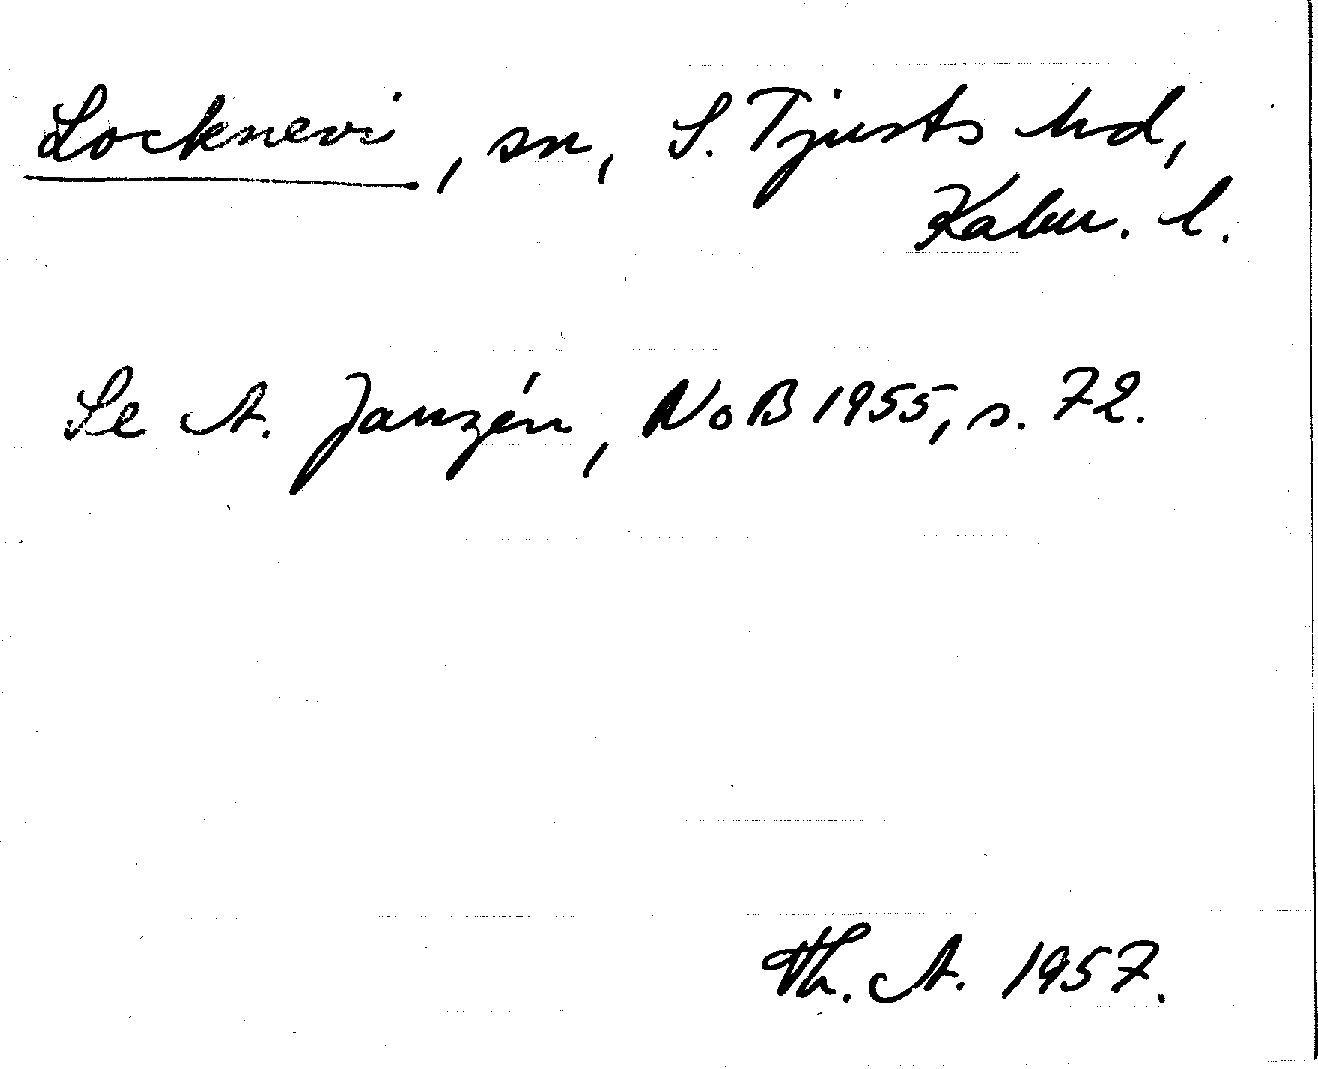 Locknevi, sn, S. Tjusts hd,
Kalm. l.
Se A. Janzén, NoB 1955, s. 72.
Th. A. 1957.